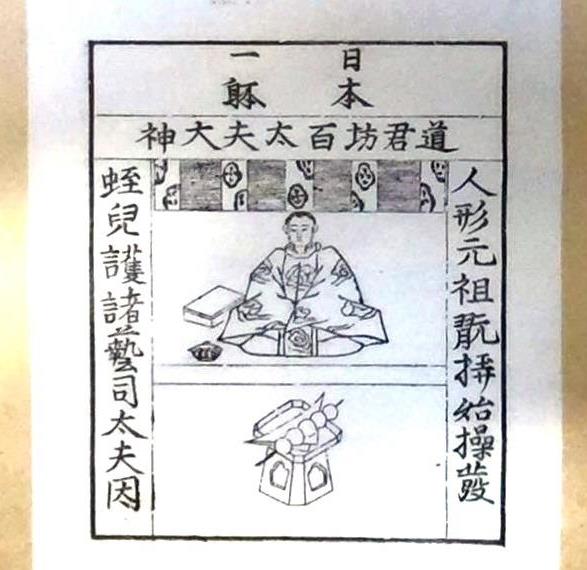 日本
一躰
道君坊百太夫大神
人形元祖翫挵始操發
蛭兒護諸藝司太夫因